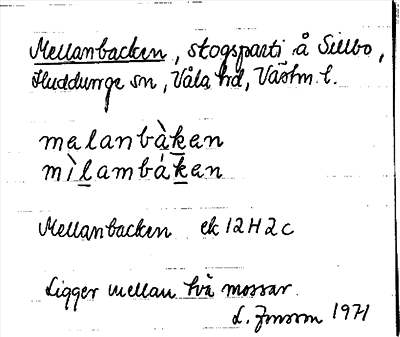 Mellanbacken, skogsparti å Sillbo,
Huddunge sn, Våla hd, Västm. l.
malanbàken
mìlambáken
Mellanbacken ek 12H2c
Ligger mellan två mossar.
L. Jonsson 1971